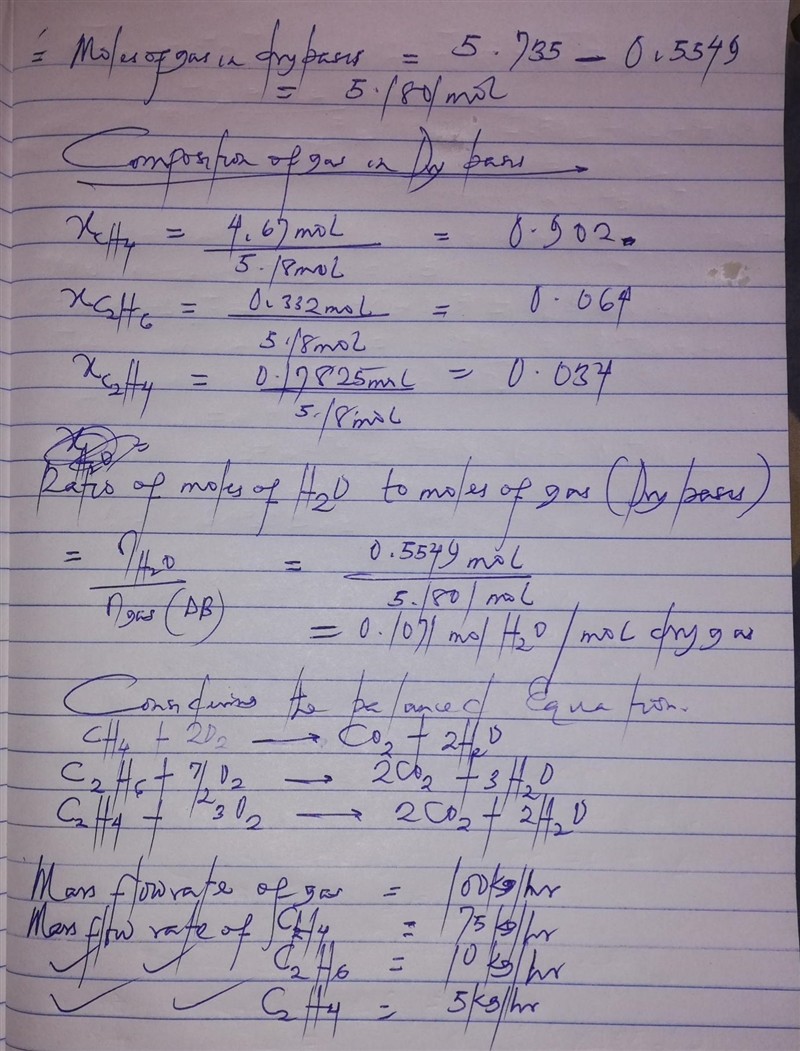 = Moles of gas in dry basis = 5.735 - 0.5549
= 5.1801 mol
Composition of gas in Dry basis
xCH4 = 4.67 mol / 5.18 mol = 0.902
xC2H6 = 0.332 mol / 5.18 mol = 0.064
xC2H4 = 0.17825 mol / 5.18 mol = 0.034
Ratio of moles of H2O to moles of gas (Dry basis)
= nH2O / ngas (DB) = 0.5549 mol / 5.1801 mol
= 0.1071 mol H2O / mol dry gas
Considering the balanced Equation.
CH4 + 2O2 → CO2 + 2H2O
C2H6 + 7/2 O2 → 2CO2 + 3H2O
C2H4 + 3O2 → 2CO2 + 2H2O
Mass flow rate of gas = 100 kg/hr
Mass flow rate of CH4 = 75 kg/hr
✓ ✓ C2H6 = 10 kg/hr
✓ ✓ C2H4 = 5 kg/hr